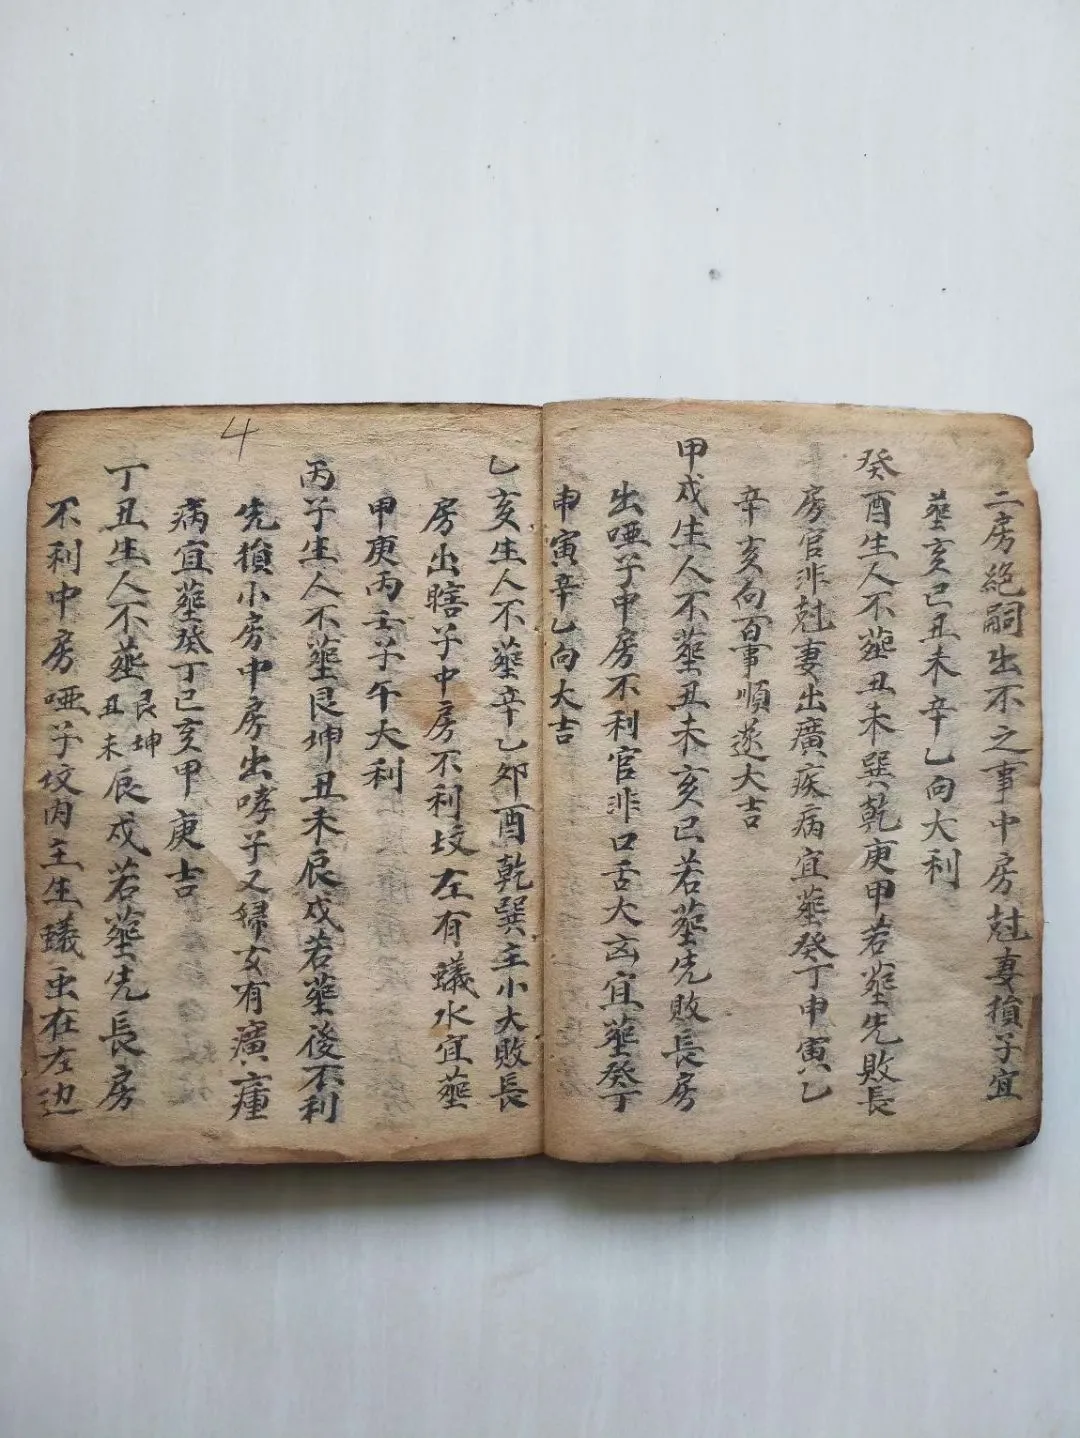 二房絕嗣出不之事中房尅妻損子宜
塟亥巳丑未辛乙向大利
癸酉生人不塟丑未巽乾庚甲若塟先敗長
房官非尅妻出癀疾病宜塟癸丁申寅乙
辛亥向百事順遂大吉
甲戌生人不塟丑未亥巳若塟先敗長房
出啞子中房不利官非口舌大凶宜塟癸丁
申寅辛乙向大吉
乙亥生人不塟辛乙夘酉乾巽主小大敗長
房出瞎子中房不利坟左有蟻水宜塟
甲庚丙壬子午大利
丙子生人不塟艮坤丑未辰戌若塟後不利
先損小房中房出哮子又婦女有癀瘇
病宜塟癸丁巳亥甲庚吉
丁丑生人不塟艮坤丑未辰戌若塟先長房
不利中房啞子坟內主生蟻虫在左边
4